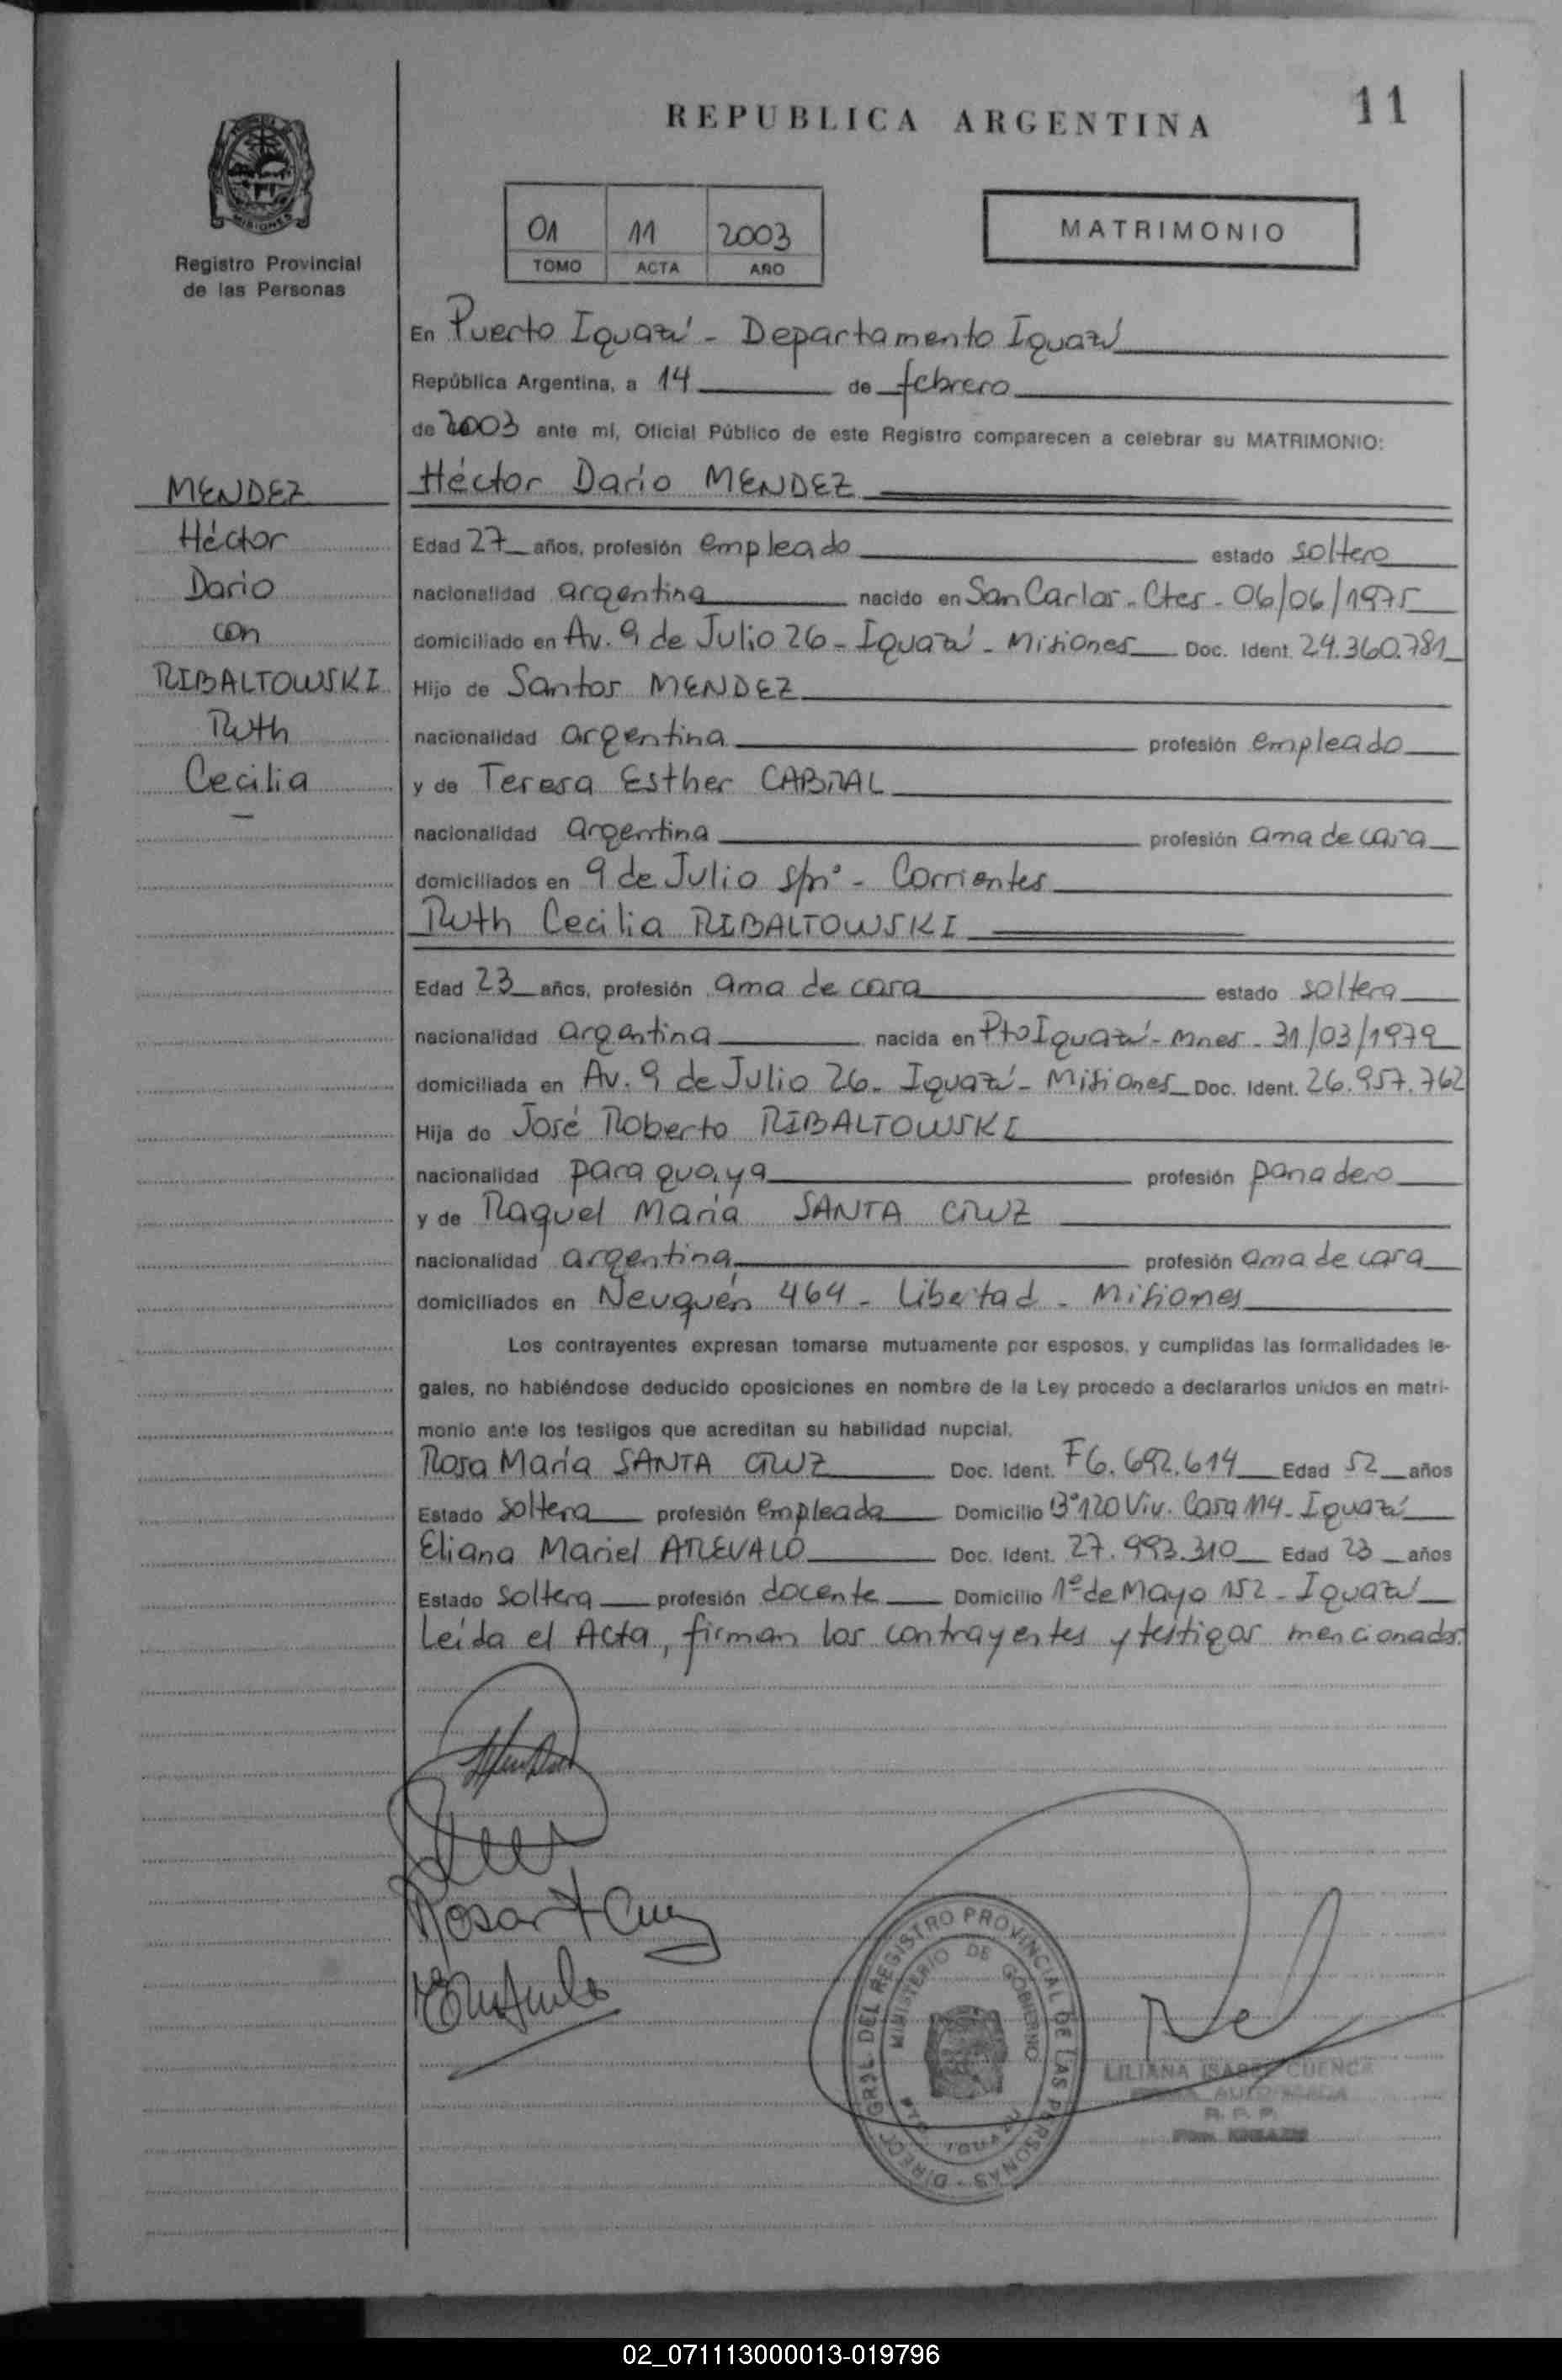 REPUBLICA ARGENTINA
11
MISIONES
Registro Provincial
de las Personas
01 11 2003
TOMO ACTA AÑO
MATRIMONIO
En Puerto Iguazú - Departamento Iguazú
República Argentina, a 14 de febrero
de 2003 ante mí, Oficial Público de este Registro comparecen a celebrar su MATRIMONIO:
MENDEZ
Héctor
Dario
con
RIBALTOWSKI
Ruth
Cecilia
Héctor Darío MENDEZ
Edad 27 años, profesión empleado estado soltero
nacionalidad argentina nacido en San Carlos - Ctes - 06/06/1975
domiciliado en Av. 9 de Julio 26 - Iguazú - Misiones Doc. Ident. 24.360.781
Hijo de Santos MENDEZ
nacionalidad argentina profesión empleado
y de Teresa Esther CABRAL
nacionalidad argentina profesión ama de casa
domiciliados en 9 de Julio s/nº - Corrientes
Ruth Cecilia RIBALTOWSKI
Edad 23 años, profesión ama de casa estado soltera
nacionalidad argentina nacida en Pto Iguazú - Mnes - 31/03/1979
domiciliada en Av. 9 de Julio 26 - Iguazú - Misiones Doc. Ident. 26.957.762
Hija de José Roberto RIBALTOWSKI
nacionalidad paraguaya profesión panadero
y de Raquel María SANTA CRUZ
nacionalidad argentina profesión ama de casa
domiciliados en Neuquén 464 - Libertad - Misiones
Los contrayentes expresan tomarse mutuamente por esposos, y cumplidas las formalidades le-
gales, no habiéndose deducido oposiciones en nombre de la Ley procedo a declararlos unidos en matri-
monio ante los testigos que acreditan su habilidad nupcial.
Rosa María SANTA CRUZ Doc. Ident. F6.692.614 Edad 52 años
Estado soltera profesión empleada Domicilio Bº 120 Viv. Casa 114 - Iguazú
Eliana Mariel AREVALO Doc. Ident. 27.993.310 Edad 23 años
Estado soltera profesión docente Domicilio 1º de Mayo 152 - Iguazú
Leída el Acta, firman los contrayentes y testigos mencionados.
Rosa + Cruz
DIRECC. GRAL DEL REGISTRO PROVINCIAL DE LAS PERSONAS
MINISTERIO DE GOBIERNO
PTO IGUAZU
LILIANA ISABEL CUENCA
FIRMA AUTORIZADA
R. P. P.
02_071113000013-019796